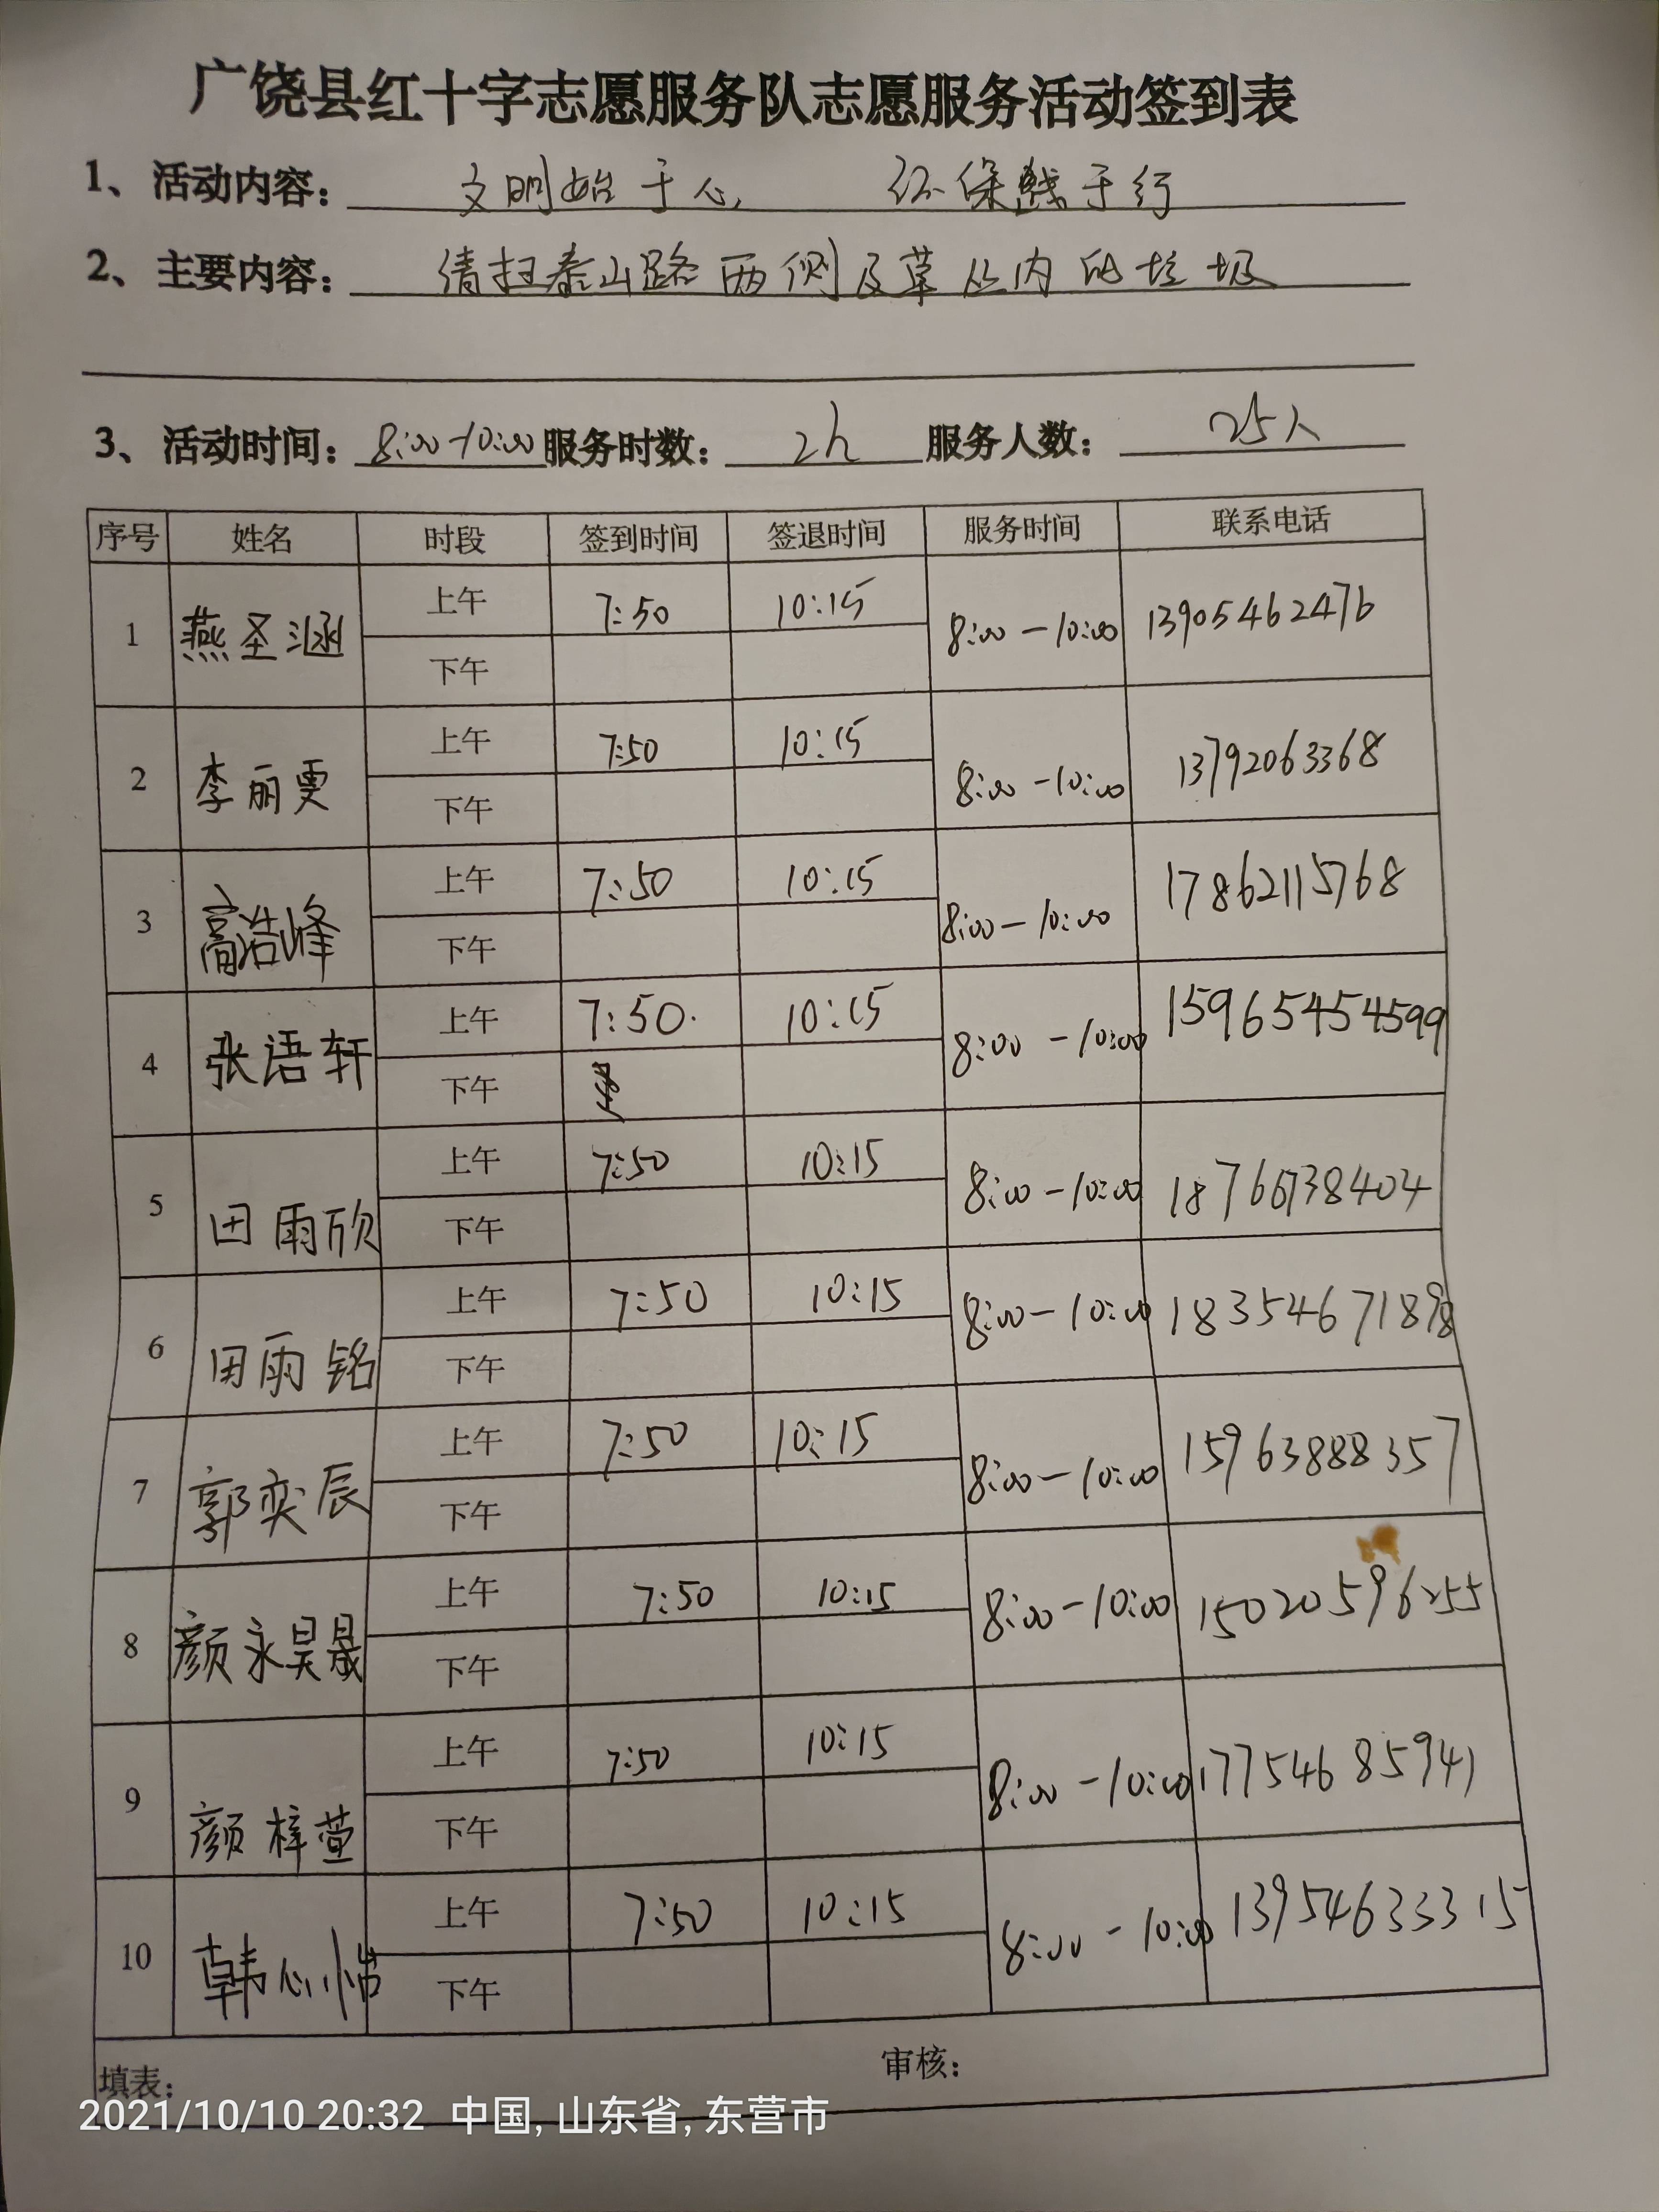 广饶县红十字志愿服务队志愿服务活动签到表
1、活动内容： 文明始于心， 环保践于行
2、主要内容： 清扫泰山路两侧及草丛内的垃圾
3、活动时间：8:00-10:00 服务时数： 2h 服务人数： 25人
序号 姓名 时段 签到时间 签退时间 服务时间 联系电话
1 燕圣涵 上午 7:50 10:15 8:00-10:00 13905462476
下午
2 李丽雯 上午 7:50 10:15 8:00-10:00 13792063368
下午
3 高浩峰 上午 7:50 10:15 8:00-10:00 17862115768
下午
4 张语轩 上午 7:50 10:15 8:00-10:00 15965454599
下午
5 田雨欣 上午 7:50 10:15 8:00-10:00 18766738404
下午
6 田雨铭 上午 7:50 10:15 8:00-10:00 18354671898
下午
7 郭奕辰 上午 7:50 10:15 8:00-10:00 15963888357
下午
8 颜永昊晟 上午 7:50 10:15 8:00-10:00 15020596255
下午
9 颜梓萱 上午 7:50 10:15 8:00-10:00 17754685941
下午
10 韩心怡 上午 7:50 10:15 8:00-10:00 13954633315
下午
填表： 审核：
2021/10/10 20:32 中国, 山东省, 东营市